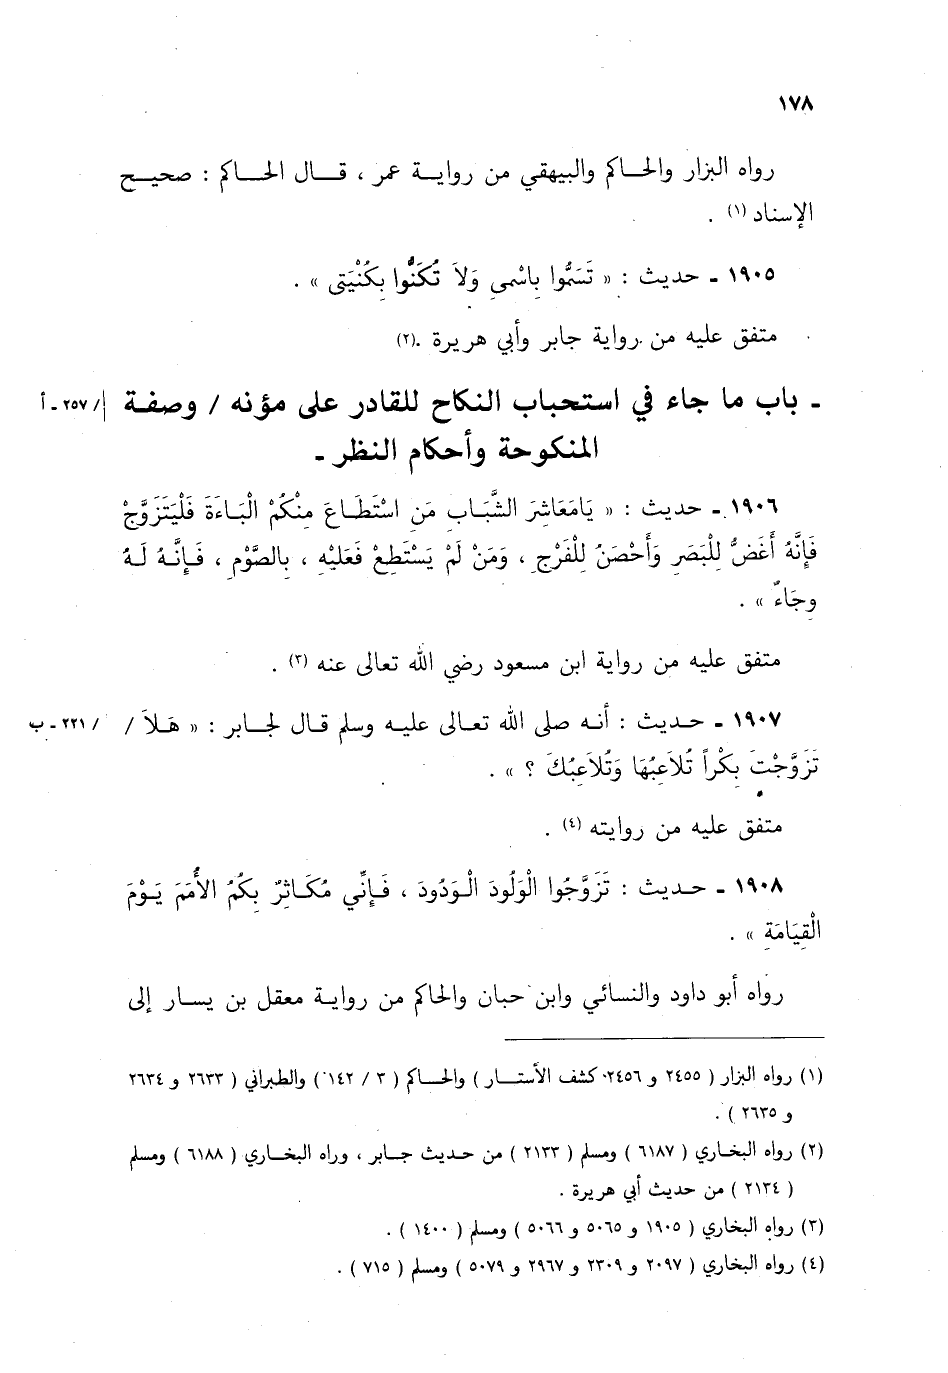 ١٧٨
رواه البزار والحـاكم والبيهقي من روايـة عمر ، قـال الحـاكم : صحيـح
الإسناد (١) .
١٩٠٥ ـ حديث : « تَسَمُّوا بِاسْمِي وَلاَ تُكَنُّوا بِكُنْيَتِي » .
متفق عليه من رواية جابر وأبي هريرة .(٢)
ـ باب ما جاء في استحباب النكاح للقادر على مؤنه / وصفـة /٢٥٧ ـ أ
المنكوحة وأحكام النظر ـ
١٩٠٦ ـ حديث : « يَامَعَاشِرَ الشَّبَابِ مَن اسْتَطَاعَ مِنْكُمْ الْبَاءَةَ فَلْيَتَزَوَّجْ
فَإِنَّهُ أَغَضُّ لِلْبَصَرِ وَأَحْصَنُ لِلْفَرْجِ ، وَمَنْ لَمْ يَسْتَطِعْ فَعَلَيْهِ ، بِالصَّوْمِ ، فَـإِنَّـهُ لَـهُ
وِجَاءٌ » .
متفق عليه من رواية ابن مسعود رضي الله تعالى عنه (٣) .
١٩٠٧ ـ حديث : أنه صلى الله تعالى عليه وسلم قال لجابر : « هَلاَ / /٢٢١ ـ ب
تَزَوَّجْتَ بِكْراً تُلاَعِبُهَا وَتُلاَعِبُكَ ؟ » .
متفق عليه من روايته (٤) .
١٩٠٨ ـ حديث : تَزَوَّجُوا الْوَلُودَ الْوَدُودَ ، فَإِنِّي مُكَاثِرٌ بِكُمُ الأُمَمَ يَوْمَ
الْقِيَامَةِ » .
رواه أبو داود والنسائي وابن حبان والحاكم من رواية معقل بن يسار إلى
(١) رواه البزار ( ٢٤٥٥ و ٢٤٥٦ كشف الأستار ) والحاكم ( ٣ / ١٤٢ ) والطبراني ( ٢٦٣٣ و ٢٦٣٤
و ٢٦٣٥ ) .
(٢) رواه البخاري ( ٦١٨٧ ) ومسلم ( ٢١٣٣ ) من حديث جابر ، وراه البخاري ( ٦١٨٨ ) ومسلم
( ٢١٣٤ ) من حديث أبي هريرة .
(٣) رواه البخاري ( ١٩٠٥ و ٥٠٦٥ و ٥٠٦٦ ) ومسلم ( ١٤٠٠ ) .
(٤) رواه البخاري ( ٢٠٩٧ و ٢٣٠٩ و ٢٩٦٧ و ٥٠٧٩ ) ومسلم ( ٧١٥ ) .